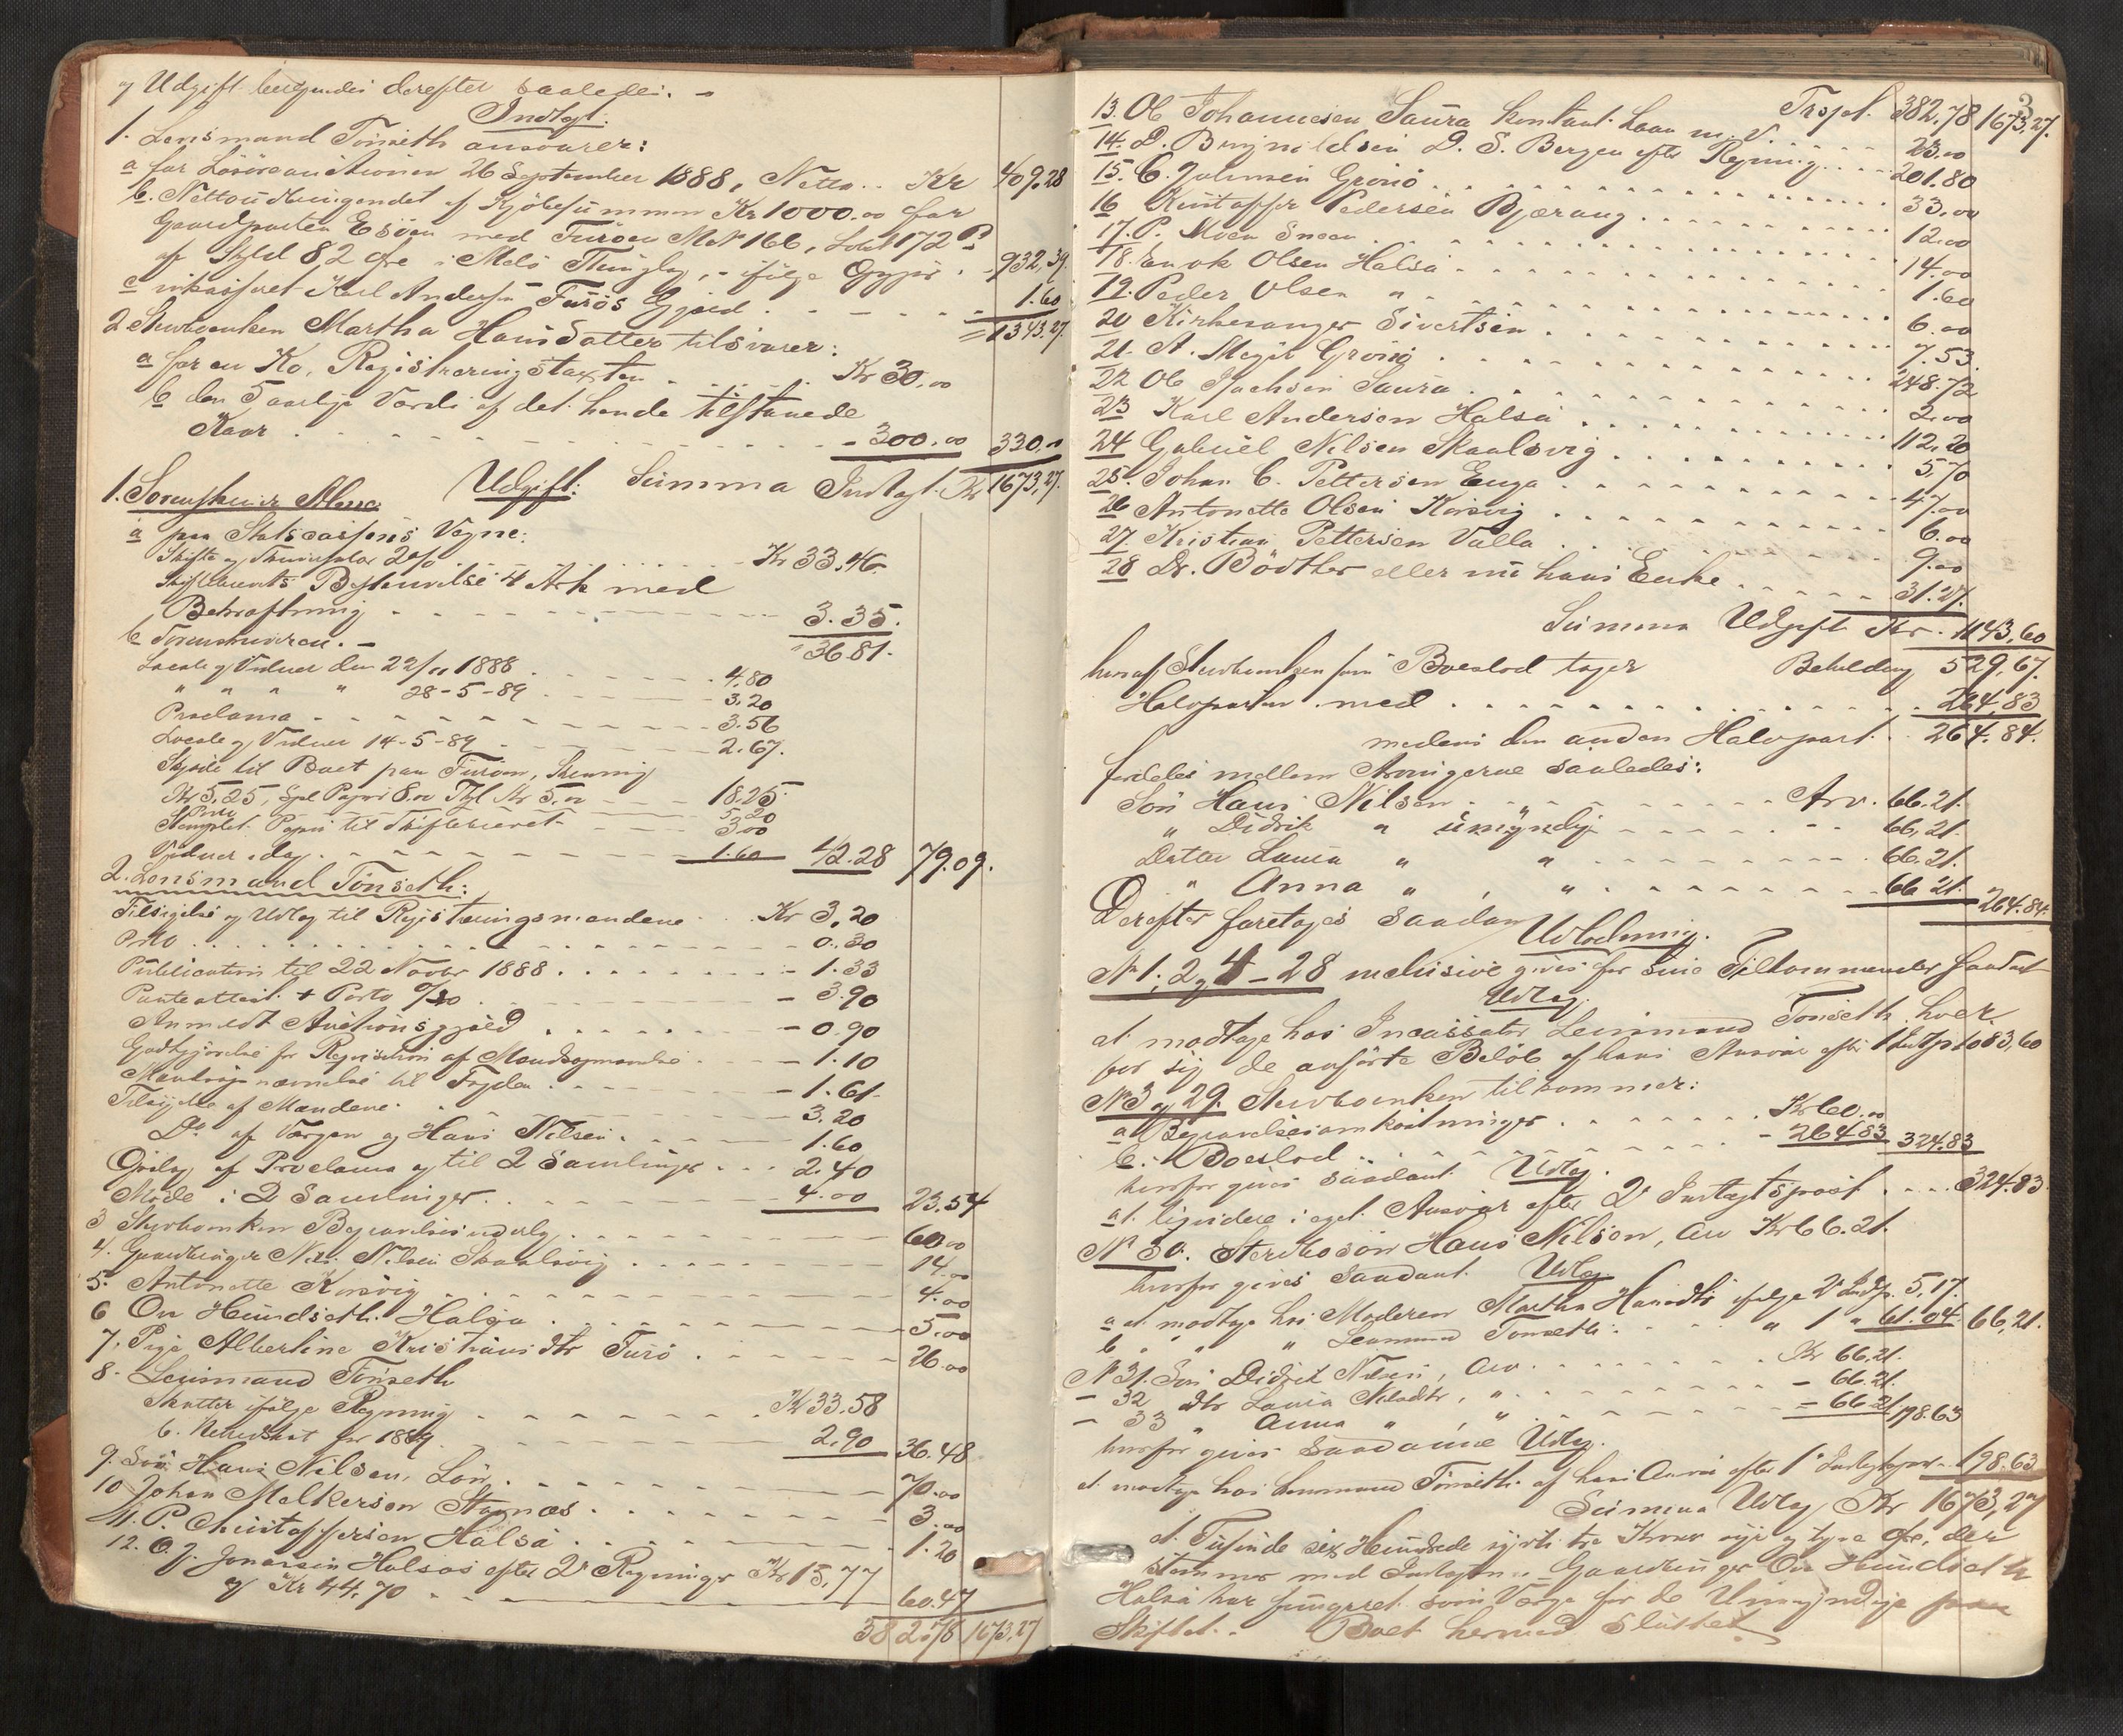 og Udgift beregnedes derefter saaledes. –
Indtgt.
1. Lensmand Tønseth ansvarer:
a for Løsøreauctionen 26 September 1888, Netto .. Kr 409.28
b. Netto af Kjøbesummen Kr 1000.00 for
Gaardparten Esøen med Furøen Mat. No 166, Løbe No 172 b
af Skyld 8,2 Øre i Melø Thinglag, - ifølge Opgjør . - 932,39.
c inkasseret Karl Andersen Furøs Gjæld . . . 1.60
= 1343.27.
2 Sterbenken Martha Hansdatter tilsvarer:
a for en Ko, Registreringstaxten . . . Kr 30.00
b den 5 aarlige Værdi af det hende tilstaaede
Kaar . . . - 300.00 330.00
Udgift: Summa Indtægt. Kr 1673,27.
1. Sorenskriver
a paa Statscassens Vegne:
Skifte og 2% . . . Kr 33.46.
Skiftebrevets Beskrivelse 4 Ark med
Bekræftning . . . 3.35.
36.81.
b Sorenskriveren. –
Locale og Vidner den 22/11 1888 . . . 4.80
" " " " 28-5-89 . . . 3,20
Proclama . . . 3.56
Locale og Vidner 14-5-89 . . . 2.67.
Skyds til Boet paa Furøen,
Kr 5.25, Kr 5.00 . . . 18.25
Porto 5,20
Stemplet Papir til Skiftebrevet 3.00
Vidner idag . . . 1.60 42.28 79.09.
2. Lensmand Tønseth:
Tilsigelse og Udlæg til Registreringsmændene . . . Kr 3,20
Porto . . . 0.30
Publication til 22 Novbr 1888 . . . - 1.33
Panteattest + Porto . . . - 3.90
Anmeldt Auctionsgjæld . . . - 0.90
Godtgjørelse for Requisition af Mandsopnævnelse . . . - 1.10
Mandsopnævnelse til Fogden . . . - 1.61
Tilsigelse af Mændene . . . 3.20
Do af Værgen og Hans Nilsen . . . 1.60
Opslag af Proclama og til 2 Samlinger . . . 2.40
Møde i 2 Samlinger . . . 4.00 23.54
3 Sterbenken Begravelsesudlæg . . . 60.00
4. Gaardbruger Nils Nilsen Skaalsvig . . . 14.00
5. Antonette Korsvig . . . 4.00
6 Ove Hundseth Halsa . . . 5.00
7. Pige Albertine Kristiansdtr Furø . . . 26.00
8. Lensmand Tønseth
Skatter ifølge Regning . . . Kr 33.58
b. for 1889 . . . 2.90 36.48
9. Søn Hans Nilsen, Løn . . . 70.00
10 Johan Melkersen Stagnæs . . . 3.00
11. P. Christoffersen Halsa . . . 1.20
12. O. J. Jonassen Halsos efter 2 Regninger Kr 15,77
og Kr 44.70 . . . 60.47
382.78 1673,27
3
Trspt. 382.78 1673,27.
13. Ole Johannesen Saura kontant Laan m. v. . . . 23.00
14. D. Brynildsen D. S. Bergen efter Regning . . . 201.80
15. C. Johnsen Grønø . . . 33.00
16 Kristoffer Pedersen Bjærang . . . 12.00
17. P. Moen Sneen . . . 14.00
18. Enok Olsen Halsa . . . 1.60
19. Peder Olsen " . . . 6.00
20 Kirkesanger Sivertsen . . . 7.53.
21. A. Meyer Grønø . . . 248.72
22 Ole Jachsen Saura . . . 2.00
23 Karl Andersen Halsa . . . 112.20
24 Gabriel Nilsen Skaalsvig . . . 5,70
25. Johan C. Pettersen Enga . . . 47.00
26 Antonette Olsen Korsvig . . . 6.00
27 Kristian Pettersen Valla . . . 9.00
28 Dr. Bödtker eller nu hans Enke . . . 31.27.
Summa Udgift Kr. 1143,60
Beholdning 529,67.
heraf Sterbenken som Boeslod tager
Halvparten med . . . 264,83
medens den anden Halvpart . . 264.84.
fordeles mellem Arvingerne saaledes:
Søn Hans Nilsen . . . Arv. 66.21.
" Didrik " umyndig . . . 66.21.
Datter Laura " " . . . 66.21.
" Anna " , " . . . 66 21. 264.84.
Derefter foretages saadan
Udlodning.
No 1, 2 og 4 – 28 inclusive gives for sine Tilkommender saadant
Udlæg.
at modtage hos Incassator Lensmand Tønseth hver
for sig de anførte Beløb af hans Ansvar efter 1 Indtp 1083,60
No 3 og 29. Sterbenken tilkommer:
a Begravelsesomkostninger . . . Kr 60.00
b. Boeslod . . . - 264.83 324.83
herfor gives saadant Udlæg.
at liqvidere i eget Ansvar efter 2 Indtægtspost . . . 324.83.
No 30. Sterbosøn Hans Nilsen, Arv Kr 66.21.
herfor gives saadant Udlæg.
a at modtage hos Moderen Martha Hansdtr ifølge 2 Indtp. 5,17.
b " " " Lensmand Tønseth . . . " 1 " 61.04. 66,21.
No 31. Søn Didrik Nilsen, Arv . . . Kr 66,21.
- 32 Dtr Laura Nilsdtr, " . . . - 66.21.
- 33 " Anna " , " . . . = 66 21 198.63
herfor gives saadanne Udlæg.
at modtage hos Lensmand Tønseth af hans Ansvar efter 1 Indtægtspost . . 198.63
Summa Udlæg Kr 1673,27
et Tusinde sex Hundrede syvti tre Kroner syv og tyve Øre, der
stemmer med Indtægten. – Gaardbruger Ove Hundseth
Halsa har fungeret som Værge for de Umyndige paa
Skiftet. – Boet hermed sluttet.